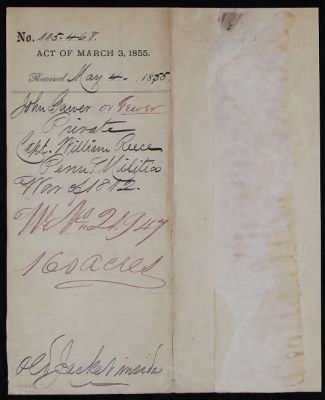 No. 115.468.
ACT OF MARCH 3, 1855.
Received May 4, 1855
John Gawer or Fewer
Private
Capt. William Reese
Penn. Militia
War of 1812.
Wt No 21.947
160 acres
Old Jacket inside